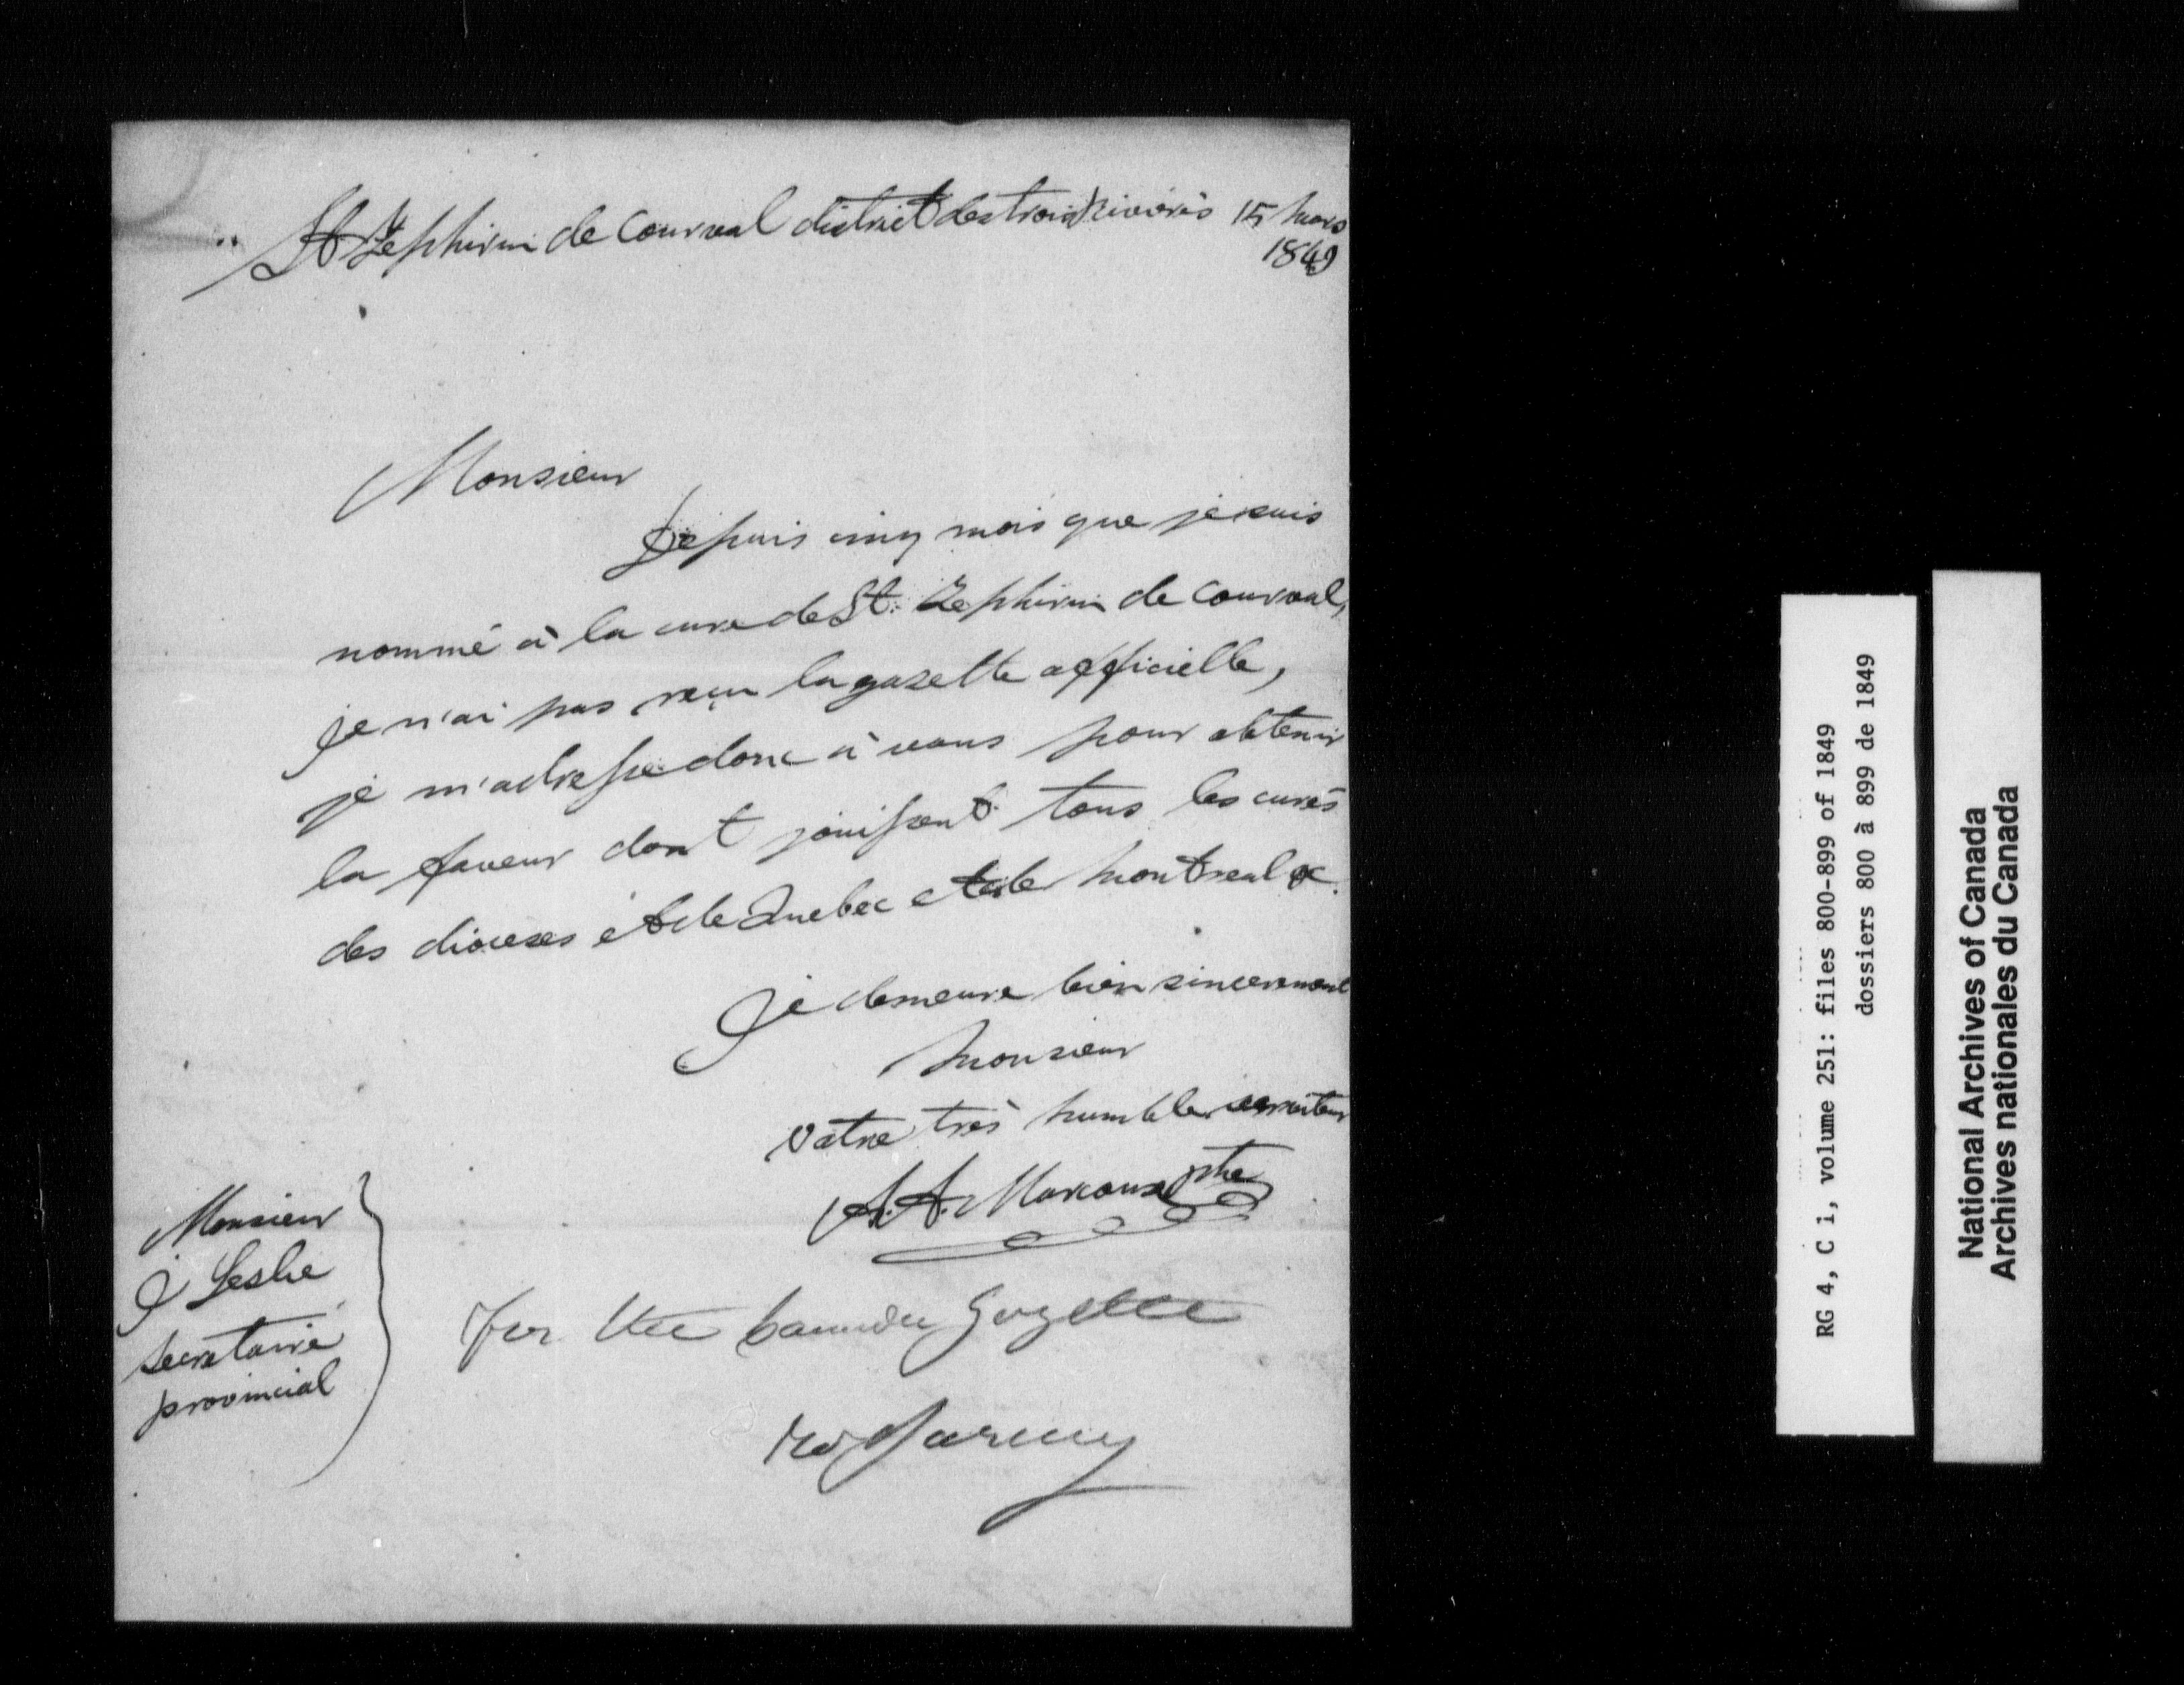 St Zephirin de Courval district des trois Rivierès 15 mars
1849
Monsieur
Depuis cinq mois que je suis
nommé à la cure de St. Zephirin de Courval,
je n'ai pas reçu la gazette officielle,
je m'adresse donc à vous pour obtenir
la faveur dont jouissent tous les curés
des dioceses et de Quebec et de Montreal &c.
Je demeure bien sincerement
Monsieur
votre très humble serviteur
A. A. Marcoux ptre
Monsieur
J Leslie
secretaire
provincial
For the Canada Gazette
RG 4, C i, volume 251: files 800-899 of 1849
dossiers 800 à 899 de 1849
National Archives of Canada
Archives nationales du Canada